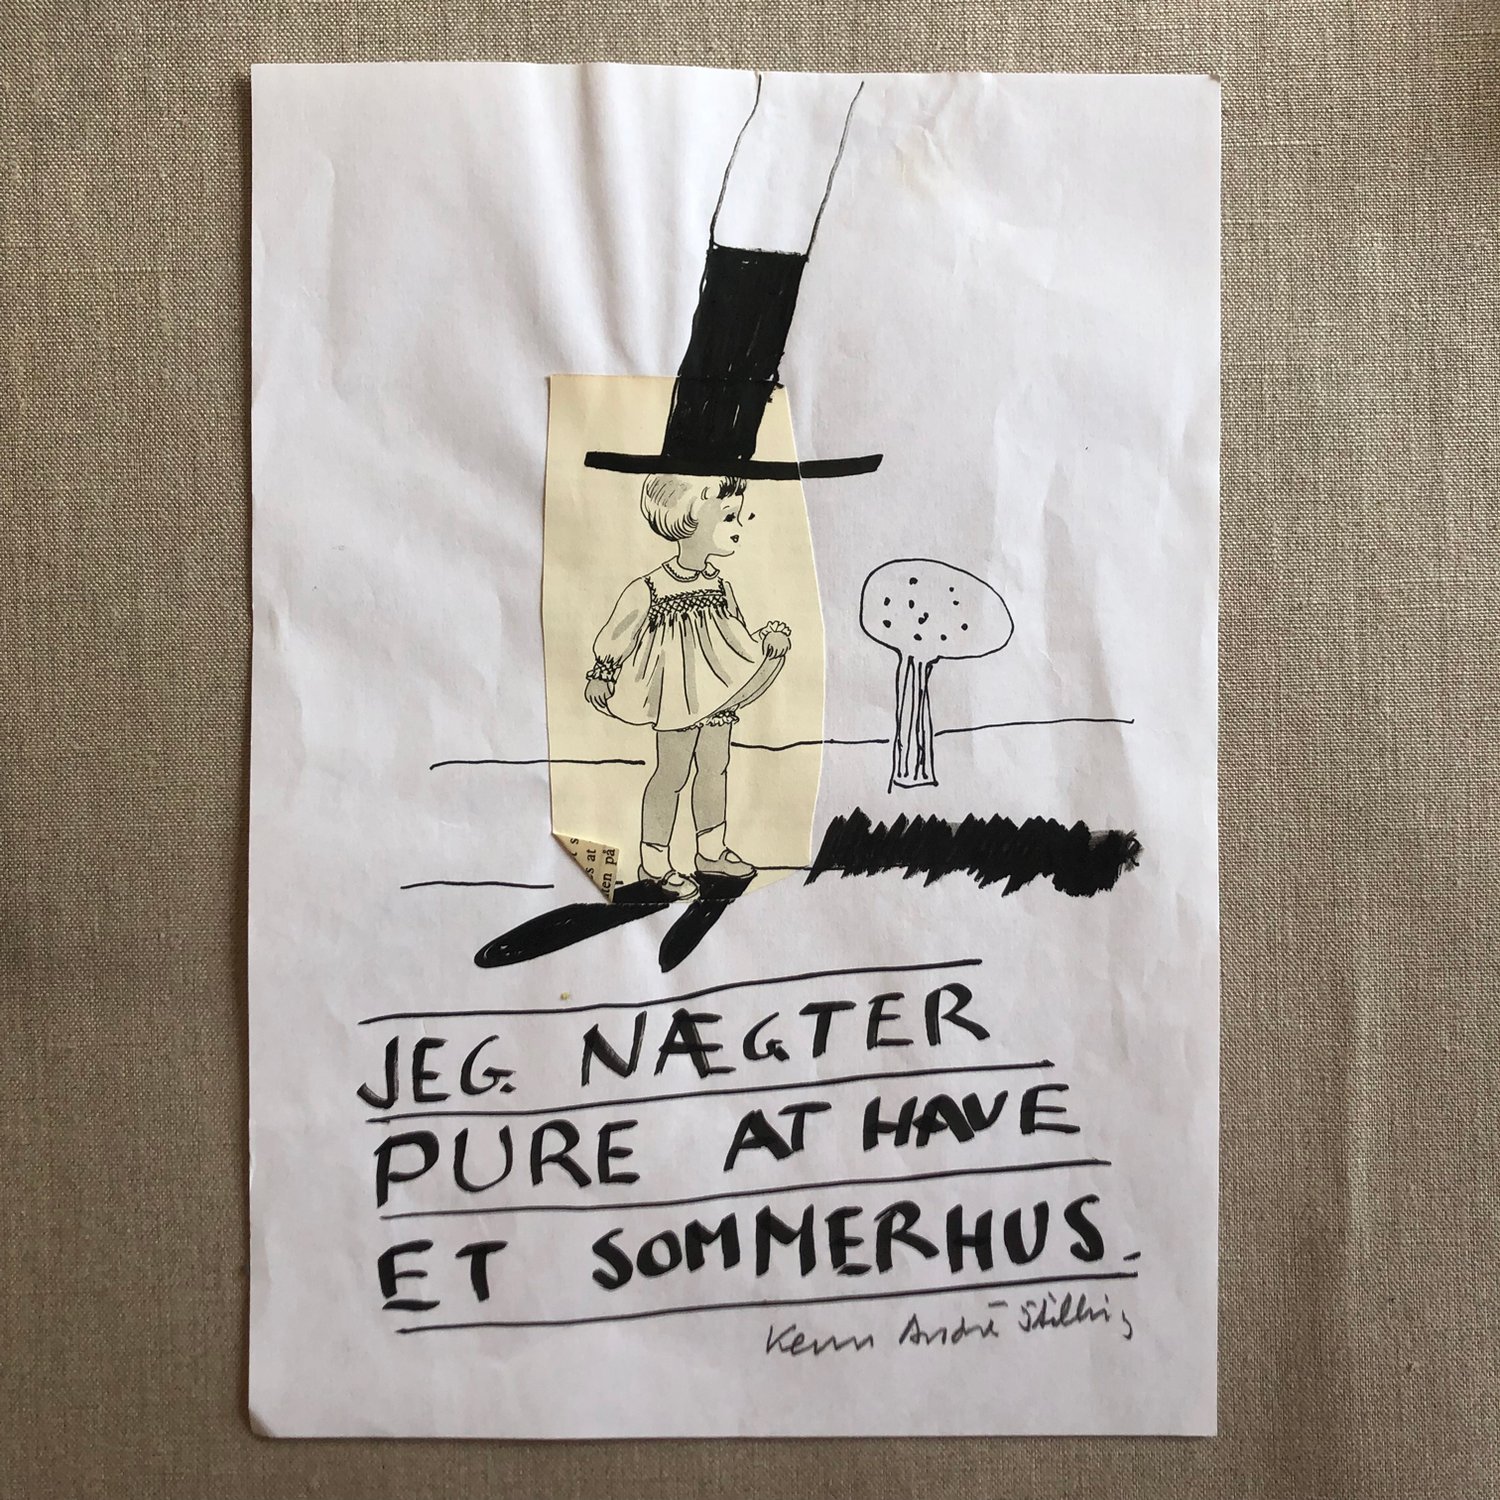 s at
ten på
JEG NÆGTER
PURE AT HAVE
ET SOMMERHUS.
Kenn André Stilling